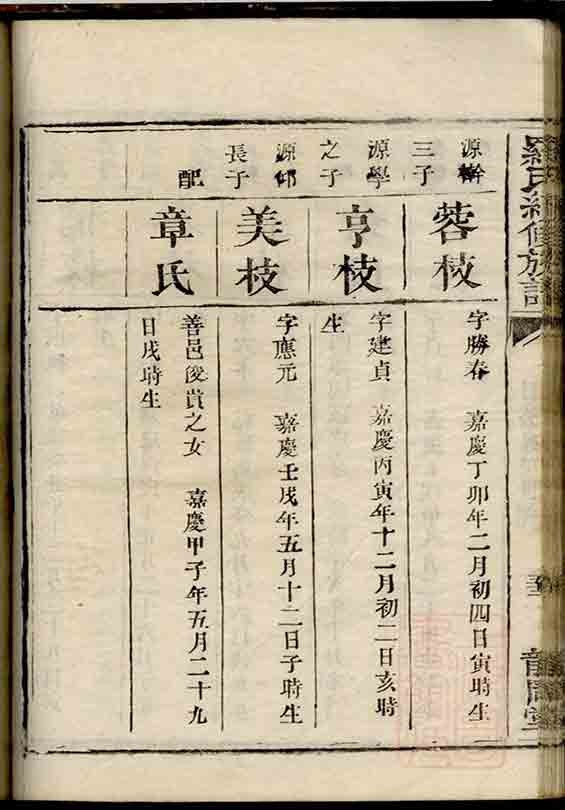 羅氏續修族譜
源幹三子
蓉枝
字勝春 嘉慶丁卯年二月初四日寅時生
源學之子
亨枝
字建貞 嘉慶丙寅年十二月初二日亥時
生
源仰長子
美枝
字應元 嘉慶壬戌年五月十二日子時生
配
章氏
善邑俊賞之女 嘉慶甲子年五月二十九
日戌時生